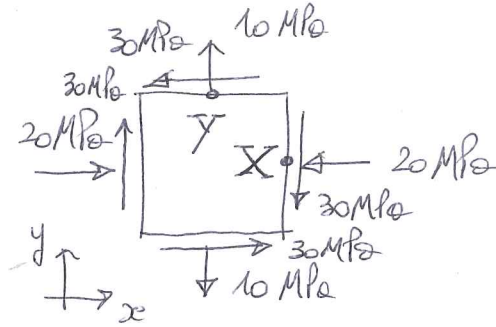 30MPa 10 MPa
30MPa
20MPa Y
X 20 MPa
30MPa
y 30MPa
10 MPa
x